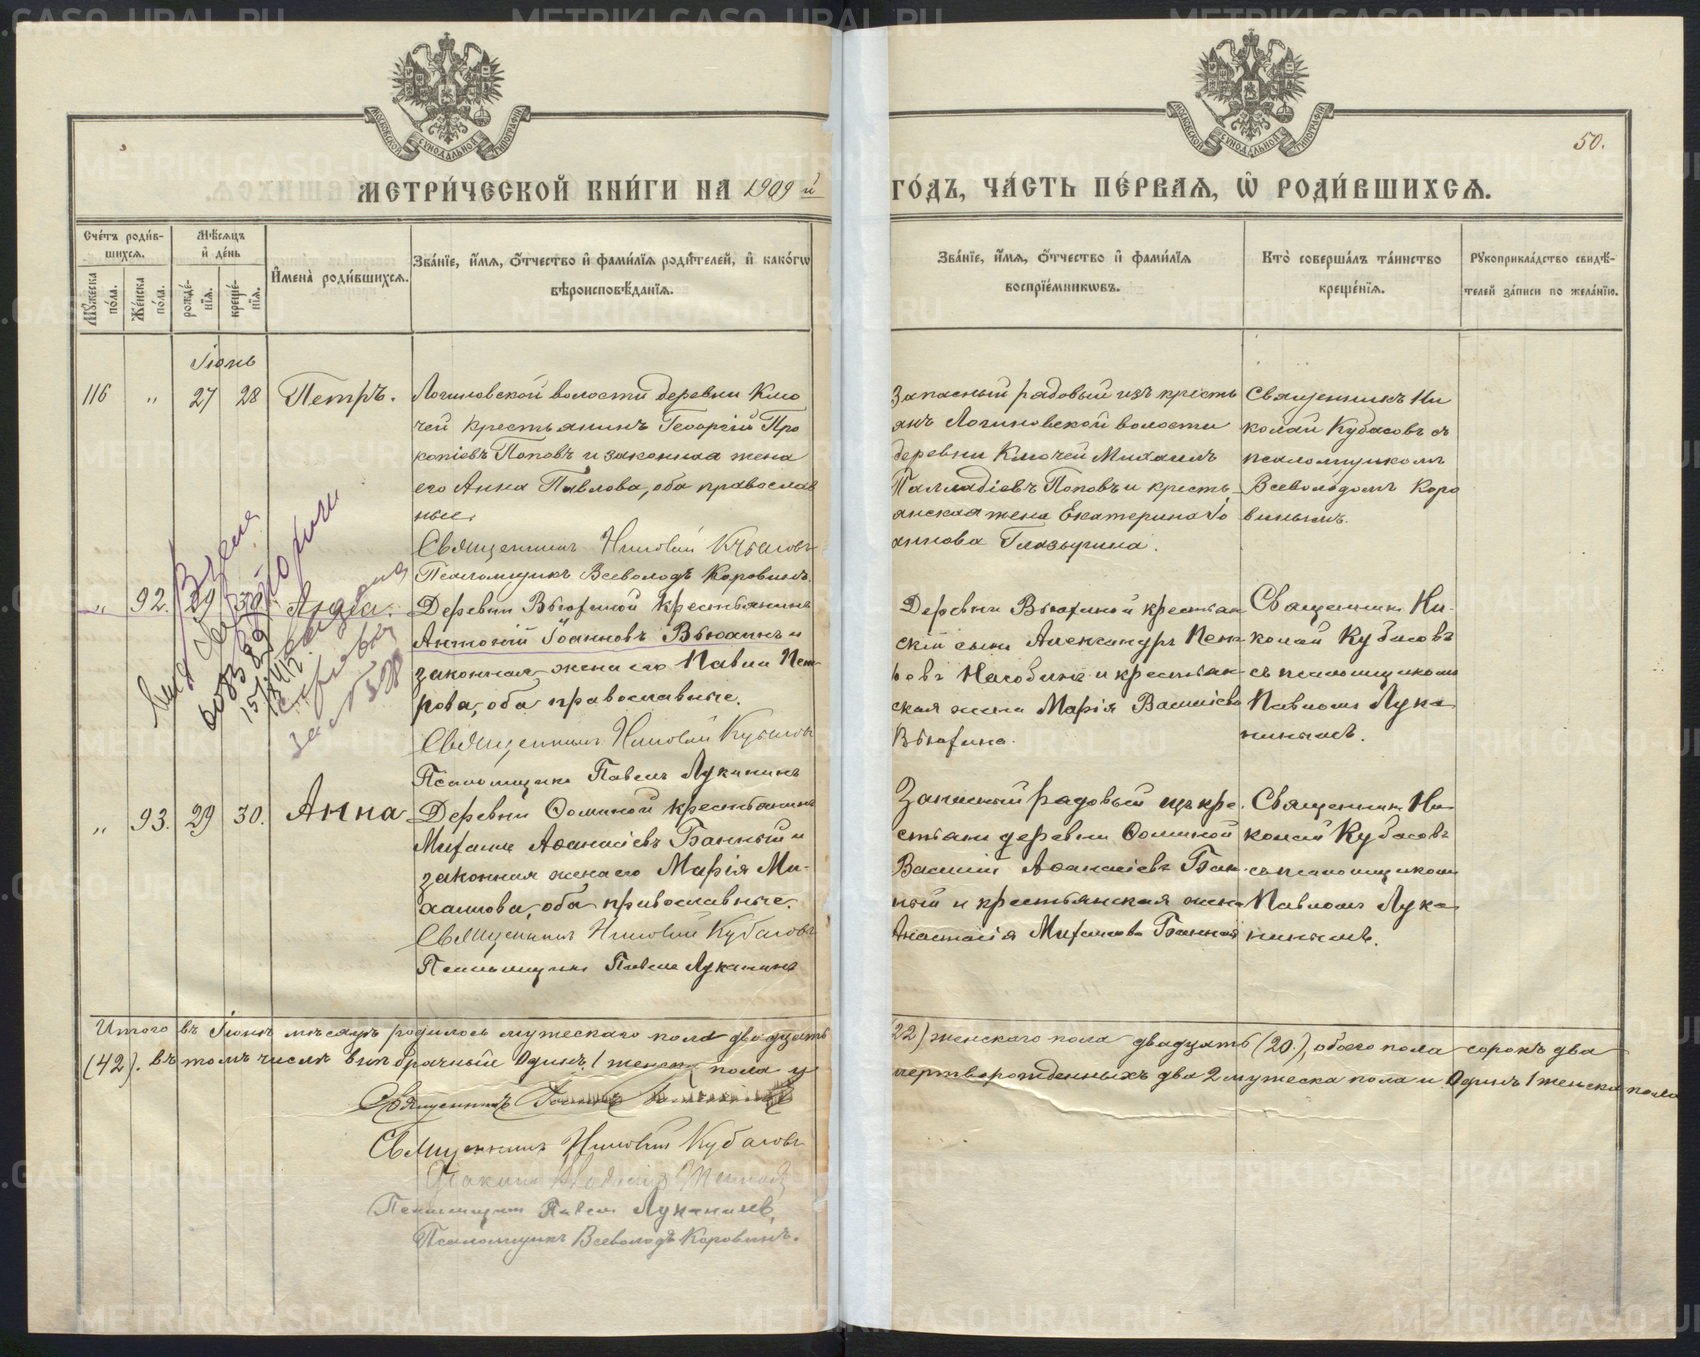 МЕТРИ́ЧЕСКОЙ КНИ́ГИ НА 1909 й ГО́ДЪ, ЧА́СТЬ ПЕ́РВАѦ, Ѡ҆ РОДИ́ВШИХСѦ.
50.
Сче́тъ роди́в-
шихсѧ.
Мꙋ́жеска по́ла.
Же́нска по́ла.
Мѣ́сѧцъ
и҆ де́нь
рожде́-
нїѧ.
креще́-
нїѧ.
И҆мена̀ роди́вшихсѧ.
Зва́нїе, и҆́мѧ, ѻ҆́тчество и҆ фами́лїѧ роди́телей, и҆ како́гѡ
вѣроисповѣ́данїѧ.
Зва́нїе, и҆́мѧ, ѻ҆́тчество и҆ фами́лїѧ
воспрїе́мникѡвъ.
Кто̀ соверша́лъ та́инство
креще́нїѧ.
Рꙋкоприкла́дство свидѣ́-
телей за́писи по жела́нїю.
Іюнь
116 " 27 28 Петръ.
Логиновской волости деревни Клю
чей крестьянинъ Георгій Про
копіевъ Поповъ и законная жена
его Анна Павлова, оба православ
ные.
Священникъ Николай Кубасовъ
Псаломщикъ Всеволодъ Коровинъ.
Запасный рядовый изъ кресть
янъ Логиновской волости
деревни Ключей Михаилъ
Палладіевъ Поповъ и кресть-
янская жена Екатерина Іо
аннова Глазырина.
Священникъ Ни
колай Кубасовъ съ
псаломщикомъ
Всеволодомъ Коро
винымъ.
" 92. 29 30 Лидія.
Деревни Вьюхиной крестьянинъ
Антоній Іоанновъ Вьюхинъ и
законная жена его Павла Пет-
рова, оба православные.
Священникъ Николай Кубасовъ
Псаломщикъ Павелъ Луканинъ
Деревни Вьюхиной крестьян
скій сынъ Александръ Пет
ровъ и крестьян
ская жена Марія Василіева
Вьюхина.
Священникъ Ни-
колай Кубасовъ
съ псаломщикомъ
Павломъ Лука
нинымъ.
" 93. 29 30. Анна
Деревни Ѳоминой крестьянинъ
Михаилъ Аѳанасіевъ Банный и
законная жена его Марія Ми-
хаилова, оба православные.
Священникъ Николай Кубасовъ
Псаломщикъ Павелъ Луканинъ
Запасный рядовый изъ кре-
стьянъ деревни Ѳоминой
Василій Аѳанасіевъ Бан-
ный и крестьянская жена
Анастасія Михаилова Банная
Священникъ Ни-
колай Кубасовъ
съ псаломщикомъ
Павломъ Лука
нинымъ.
Итого въ Іюнѣ мѣсяцѣ родилось мужескаго пола двадцать два (22) женскаго пола двадцать (20), обоего пола сорокъ два
(42). въ томъ числѣ внѣбрачный Одинъ 1 женска пола и мертворожденныхъ два 2 мужеска пола и Одинъ 1 женска пола
Священникъ
Священникъ Николай Кубасовъ
Псаломщикъ Павелъ Луканинъ
Псаломщикъ Всеволодъ Коровинъ.
METRIKI.GASO-URAL.RU